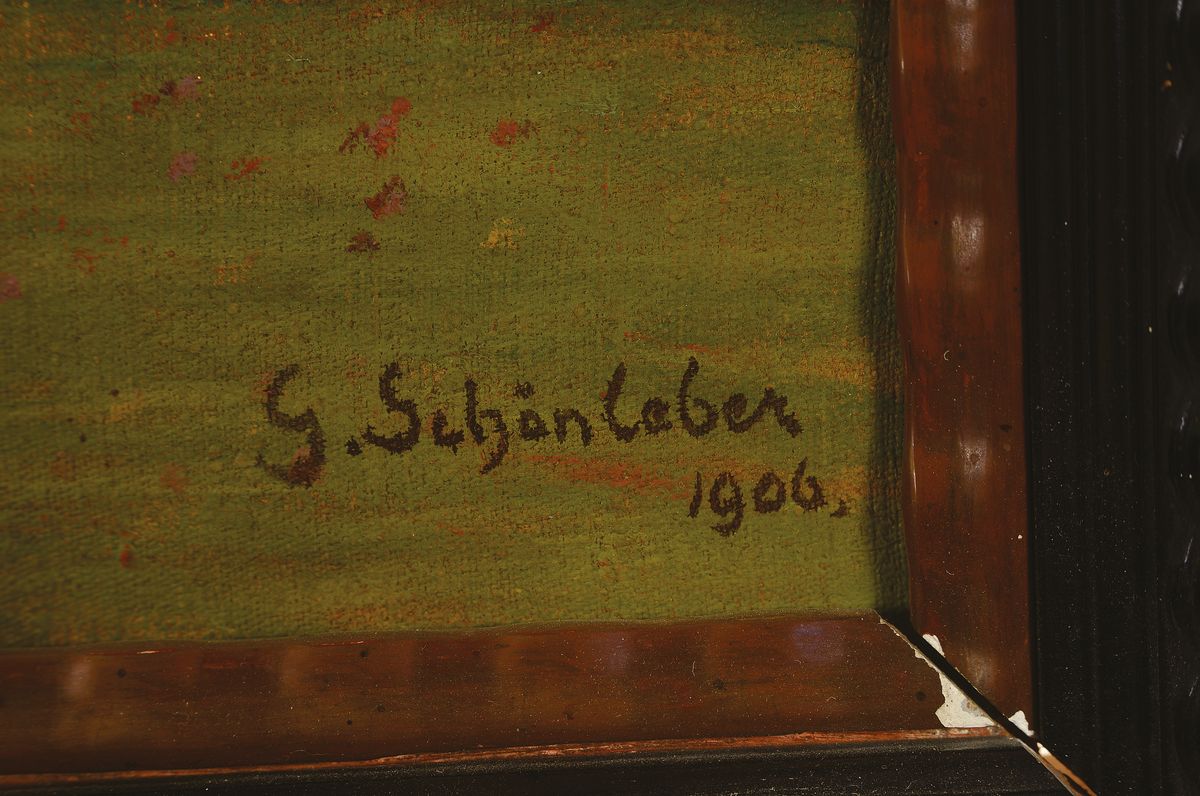 G. Schönleber
1906.